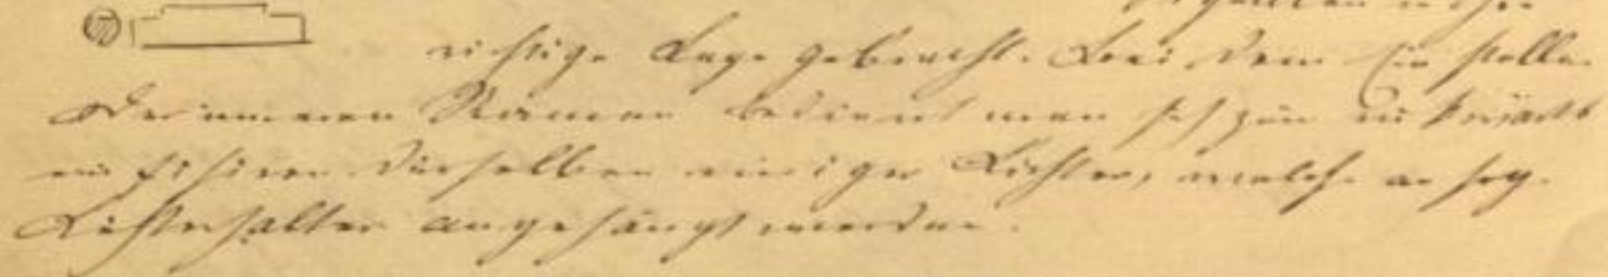 richtige Lage gebracht. Bei dem Einstellen
der inneren Räume bedient man sich zum
derselben einiger Lichter, welche an sog.
Lichterhalter angehängt werden.